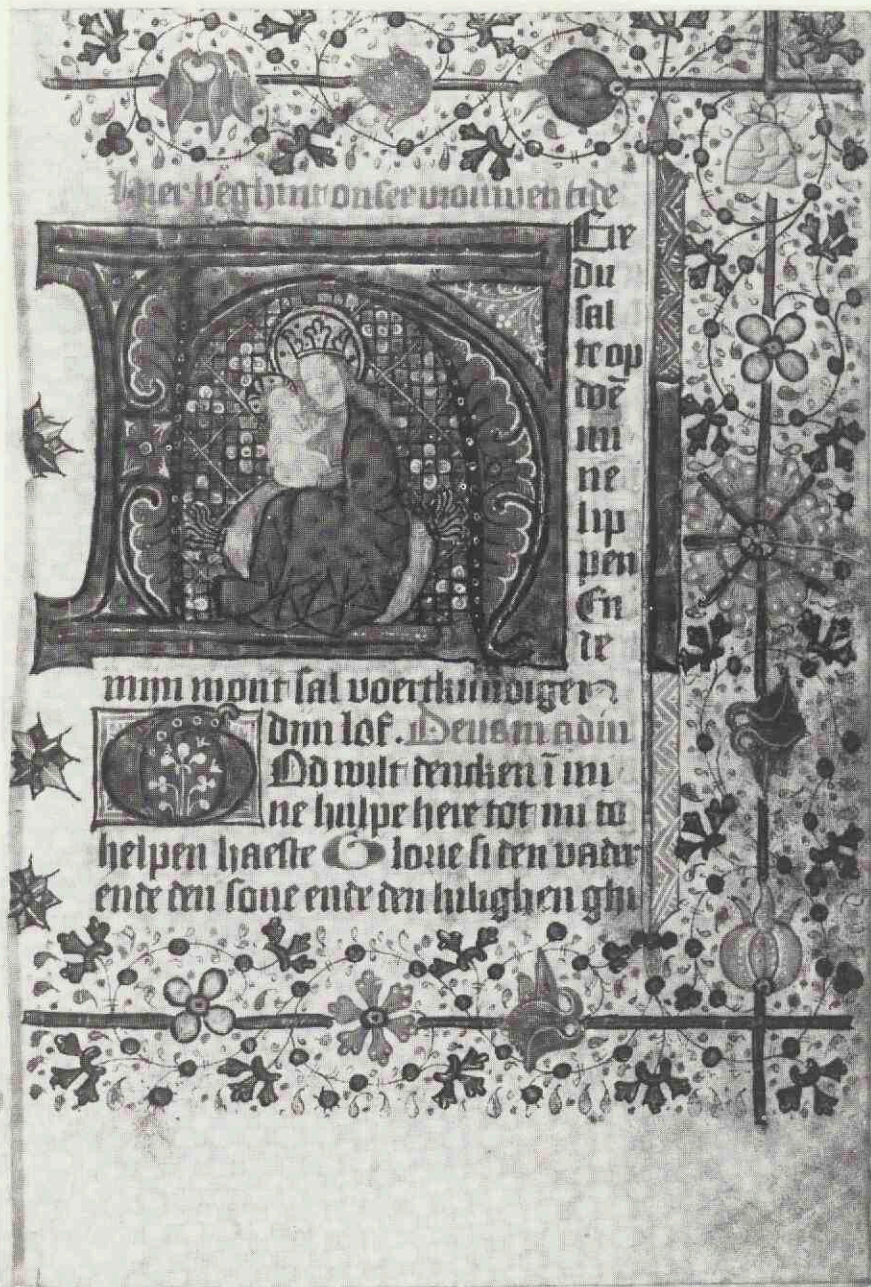 hier beghint onser vrouwen tide
HEre
du
sal
te op
wē
mi
ne
lip
pen
En
de
mijn mont sal voertkundigen
dijn lof. Deus in adiu
GOd wilt dencken ī mi
ne hulpe here tot mi te
helpen haeste Glorie si den vader
ende den sone ende den hilighen ghi